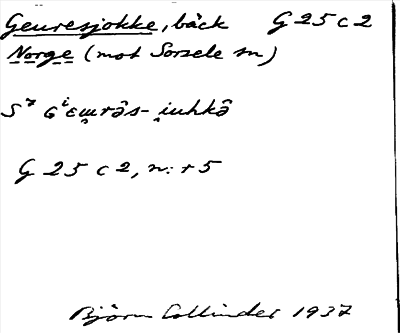 Geuresjokke, bäck G 25 c 2
Norge (mot Sorsele sn)
S⁷ Gⁱεɯ̯râs- i̯uhkâ
G 25 c 2, n:r 5
Björn Collinder 1937